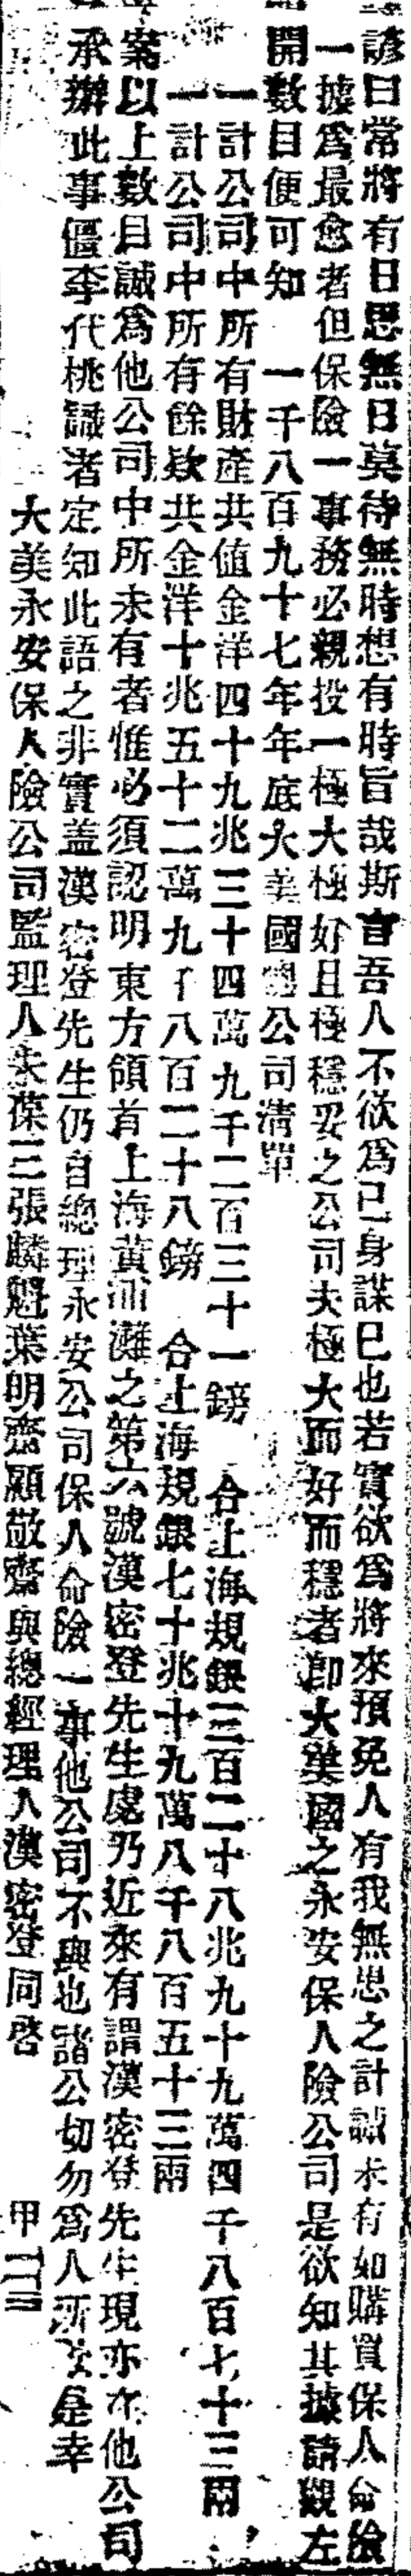 諺曰常將有日思無日莫待無時想有時旨哉斯言吾人不欲爲己身謀已也若實欲爲將來預免人有我無患之計誠未有如購買保人命險
一據爲最愈者但保險一事務必親投一極大極好且極穩妥之公司夫極大而好而穩者卽大美國之永安保人險公司是欲知其據請觀左
開數目便可知　一千八百九十七年年底大美國總公司清單
一計公司中所有財產共值金洋四十九兆三十四萬九千二百三十一鎊　合上海規銀三百二十八兆九十九萬四千八百七十三兩
一計公司中所有餘欵共金洋十兆五十二萬九千八百二十八鎊　合上海規銀七十兆十九萬八千八百五十三兩
案以上數目誠爲他公司中所未有者惟必須認明東方領首上海黃浦灘之第六號漢密登先生處乃近來有謂漢密登先生現亦在他公司
承辦此事僵李代桃識者定知此語之非實盖漢密登先生仍自總理永安公司保人命險一事他公司不與也諸公切勿爲人所是幸
大美永安保人險公司監理人葆三張麟魁葉明齋顧敬齋與總經理人漢密登同啓　甲